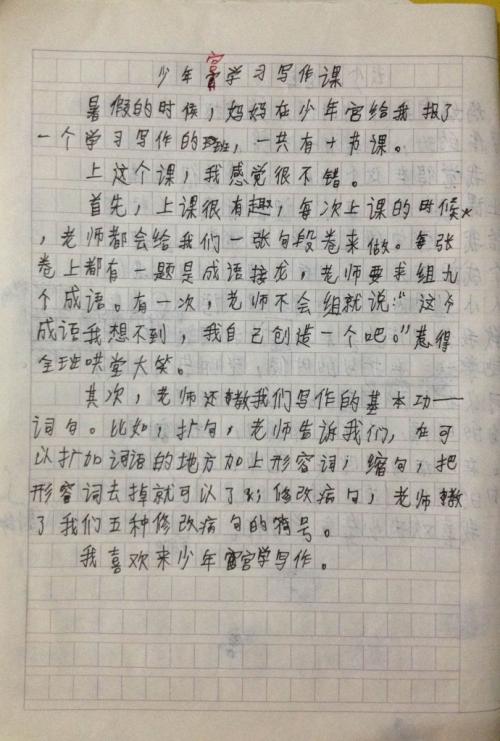 少年宫学习写作课
暑假的时候，妈妈在少年宫给我报了
一个学习写作的班，一共有十节课。
上这个课，我感觉很不错。
首先，上课很有趣，每次上课的时候
，老师都会给我们一张句段卷来做。每张
卷上都有一题是成语接龙，老师要求组九
个成语。有一次，老师不会组就说：“这个
成语我想不到，我自己创造一个吧。”惹得
全班哄堂大笑。
其次，老师还教我们写作的基本功——
词句。比如，扩句，老师告诉我们，在可
以扩加词语的地方加上形容词；缩句，把
形容词去掉就可以了；修改病句，老师教
了我们五种修改病句的符号。
我喜欢来少年宫学写作。